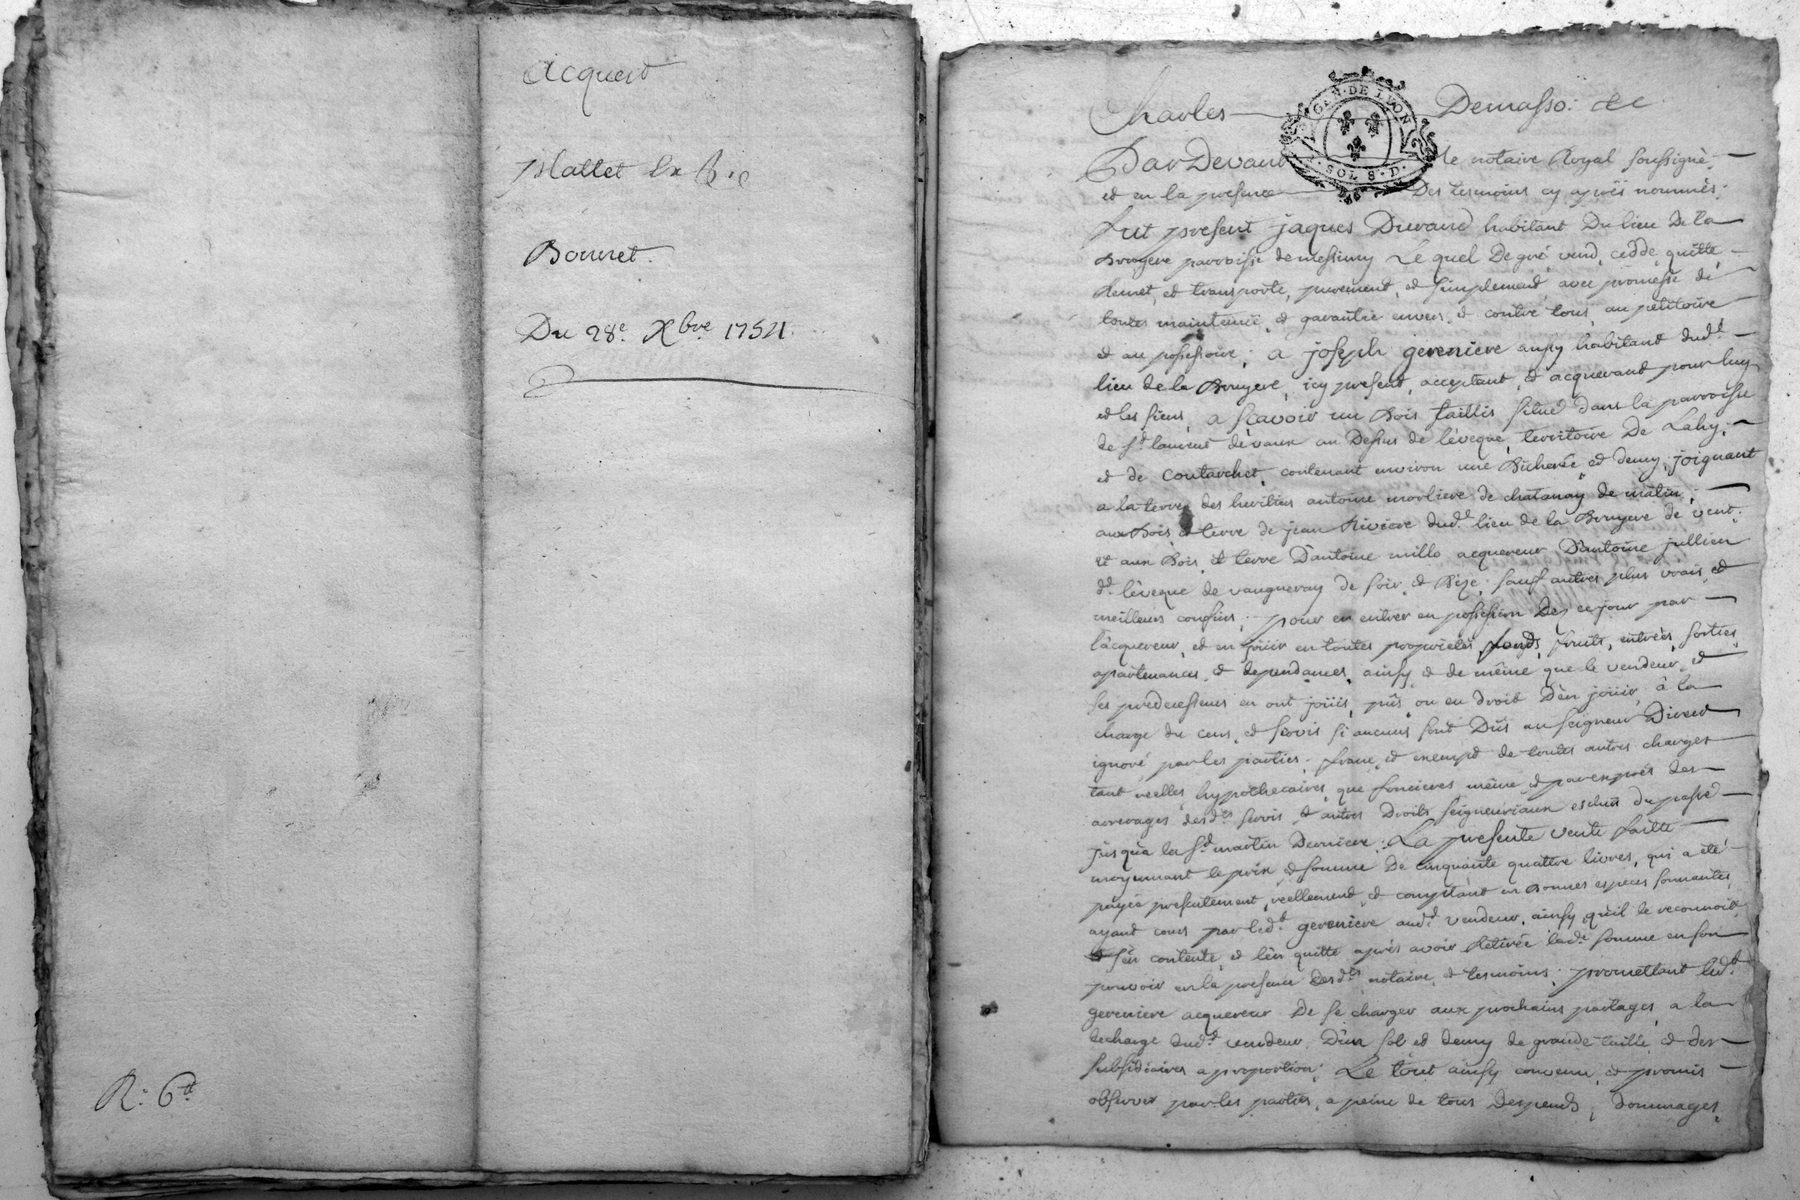 Acquest
Mallet
Bonnet.
Du 28e. Xbre 1751.
R: 6d
GEN. DE LYON
SOL 8. D.
Charles Demasso: &c
Par Devant le notaire Royal soussigné
et en la presence Des tesmoins cy après nommés.
fut present jaques Durand habitant Du lieu De la
Bruyere parroisse de messimy Le quel De gré, vend, cedde, quitte
Remet, et transporte, purement, et simplement, avec promesse de
toutes maintenüe, et garantie envers, et contre tous, au petitoire
et au possessoire; a joseph gereniere aussy habitant dud.t
lieu de la Bruyere, icy present, acceptant, et acquerant pour luy
et les siens, a scavoir un Bois taillis situé dans la parroisse
de st. laurent de vaux au Dessus de lévêque, territoire De Lahy,
et de coutarchet, contenant environ une Bicherée et demy, joignant
a la terre des heritiers antoine morliere de chatanay de matin,
aux Bois, et terre de jean Riviere dud.t lieu de la Bruyere de vent.
et aux Bois, et terre D'antoine mille acquereur D'antoine jullien
dt. lévêque de vaugneray de soir, et Bize, sauf autres plus vrais, et
meilleurs confins, pour en entrer en possession Dez ce jour par
l'acquereur, et en joüir en toutes proprietés, fonds, fruits, entrées, sorties
apartenances, et dependances, ainsy et de même que le vendeur, et
ses predecesseurs en ont joüis, pûs, ou eu droit D'en joüir, à la
charge du cens, et servis si aucuns sont Dûs au seigneur Direct
ignoré par les parties. franc, et exempt de toutes autres charges
tant reelles, hypothecaires, que foncieres même, et par exprés des
arrerages desd.ts servis, et autres Droits seigneuriaux eschus du passé
jusqu'a la st. martin Derniere. La presente vente faitte
moyennant le prix, et somme De cinquante quattre livres, qui a été
payée presentement, reellement, et comptant en Bonnes especes sonnantes
ayant cours par led.t gereniere aud.t vendeur, ainsy qu'il le reconnoit
s'en contente, et l'en quitte après avoir Retirée lad.e somme en son
pouvoir en la presence desd.ts notaire, et tesmoins; promettant led.t
gereniere acquereur De se charger aux prochains partages, a la
decharge dud.t vendeur, D'un sol et demy de grande taille, et des
subsidiaires a proportion; Le tout ainsy convenu, et promis
observer par les parties, a peine de tous Despends, dommages,